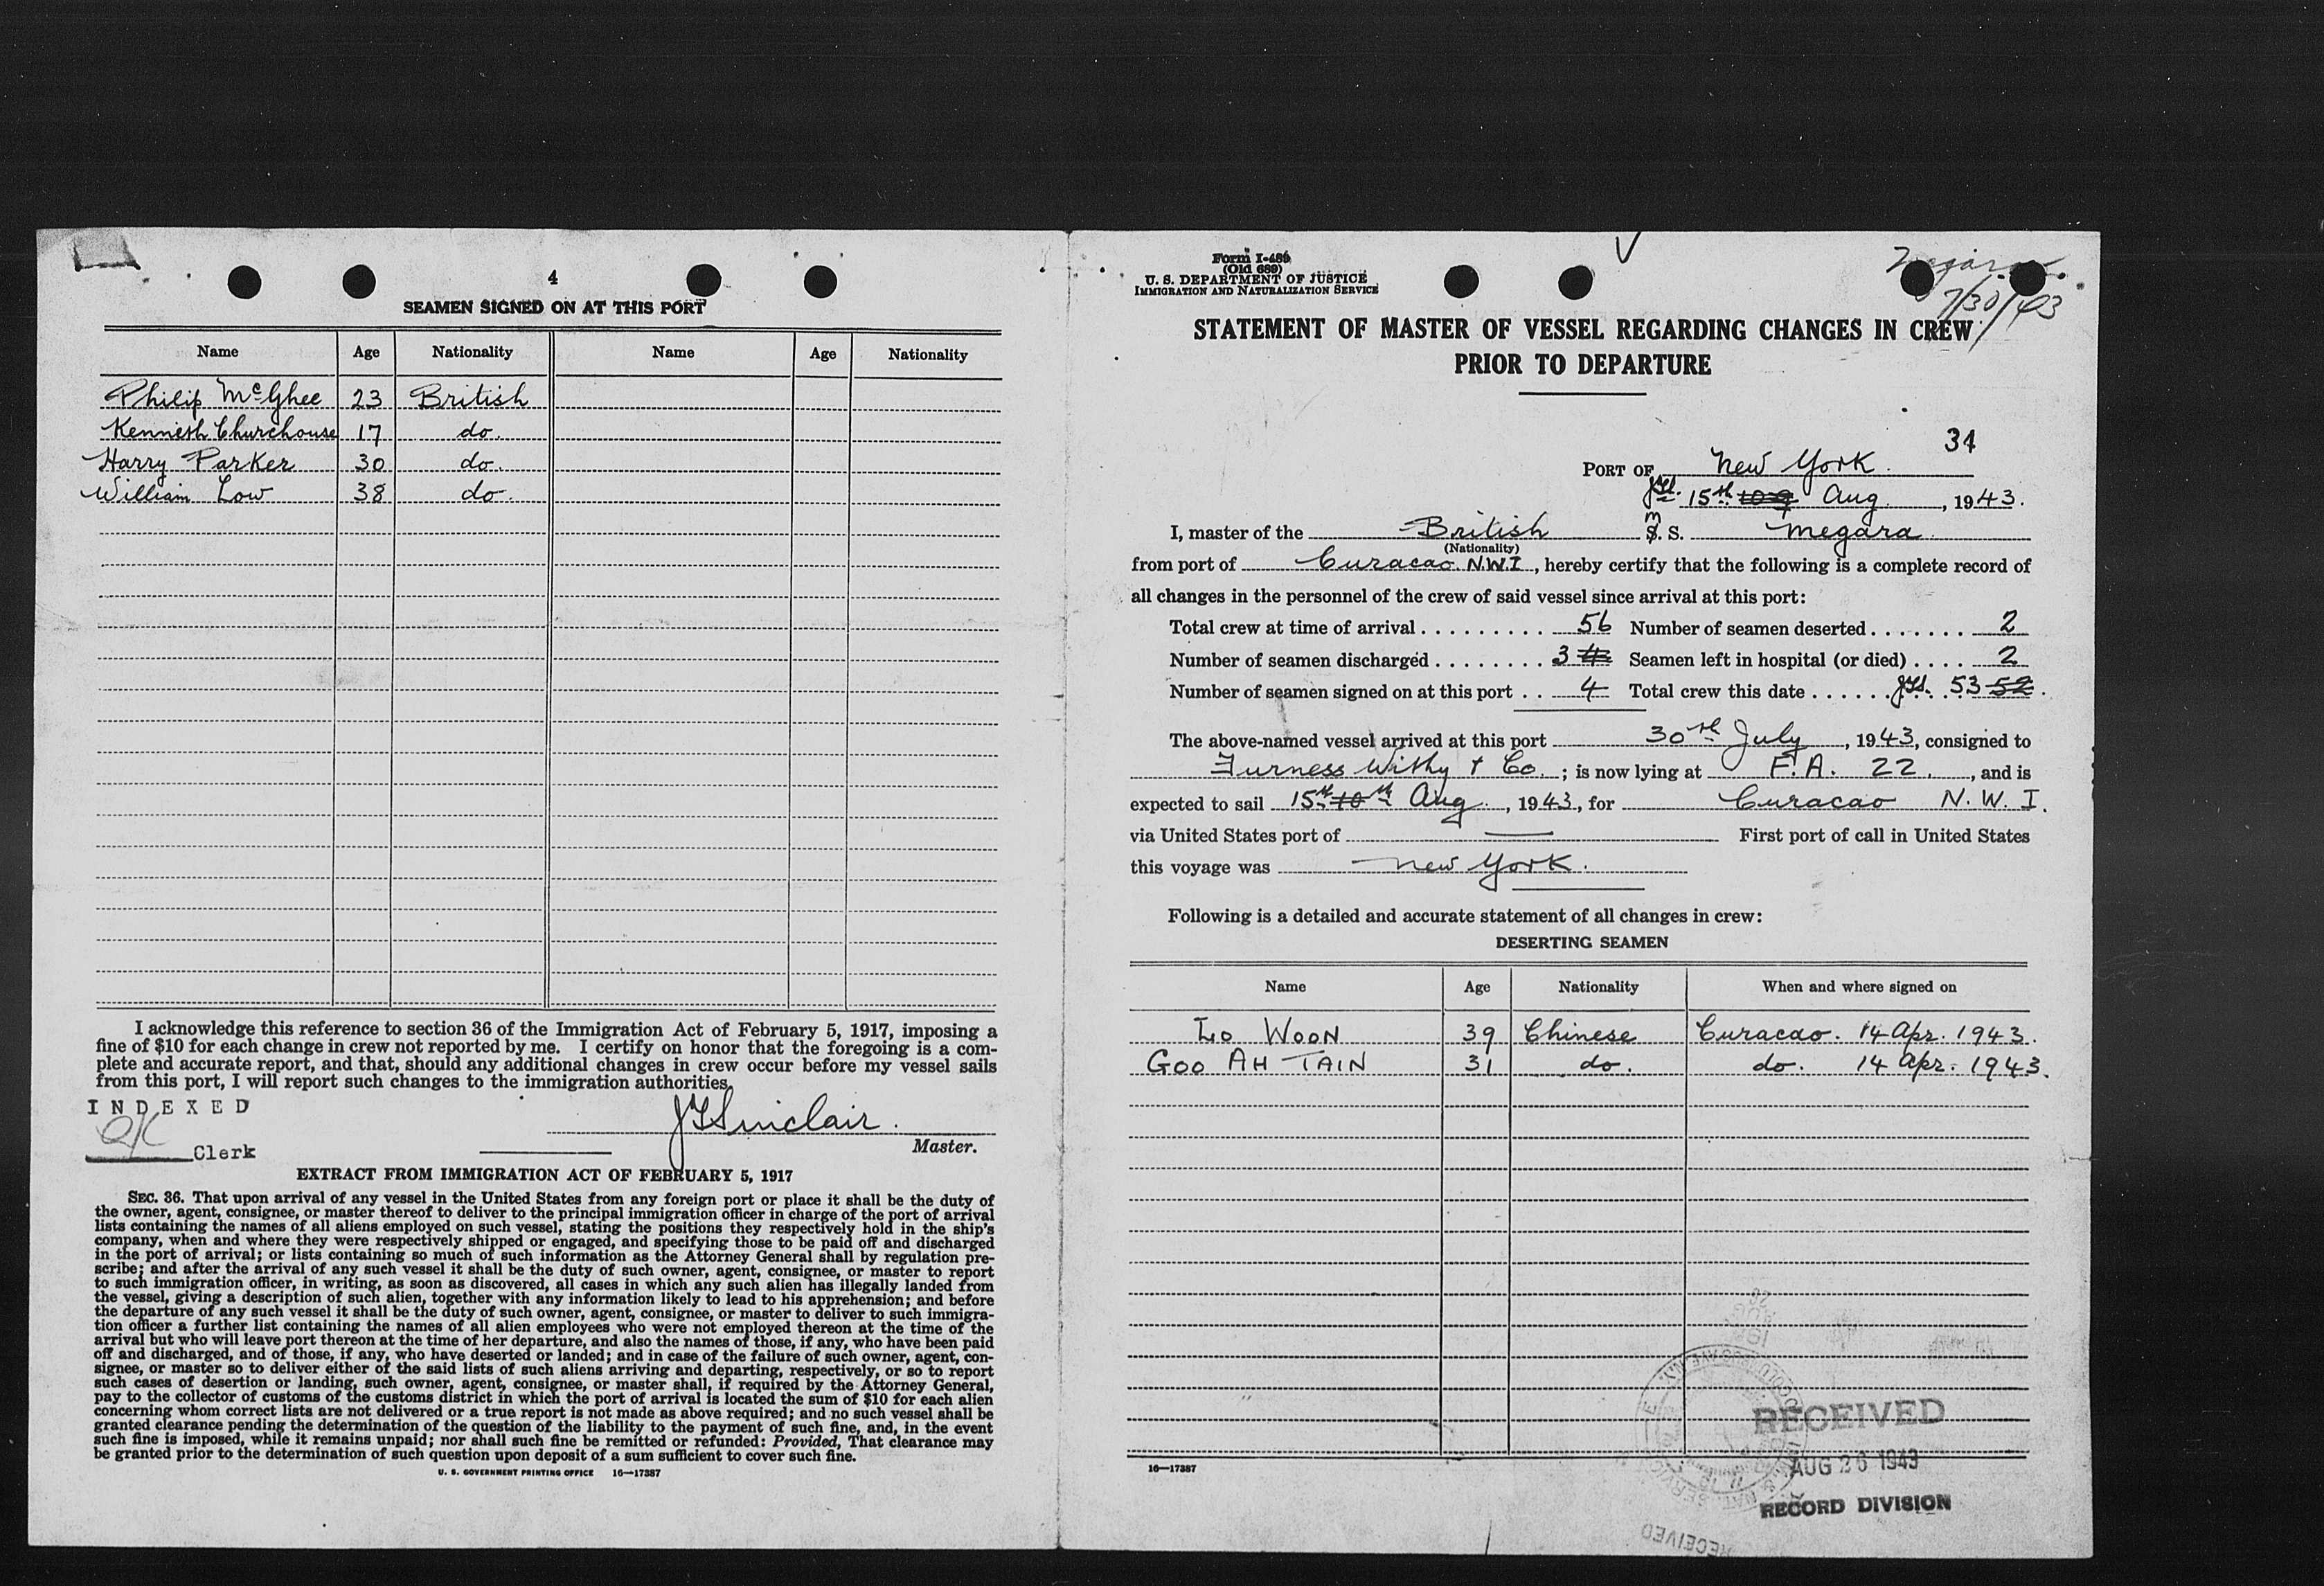 4
SEAMEN SIGNED ON AT THIS PORT
Name Age Nationality Name Age Nationality
Philip McGhee 23 British
Kenneth Churchouse 17 do.
Harry Parker 30 do.
William Low 38 do.
I acknowledge this reference to section 36 of the Immigration Act of February 5, 1917, imposing a
fine of $10 for each change in crew not reported by me. I certify on honor that the foregoing is a com-
plete and accurate report, and that, should any additional changes in crew occur before my vessel sails
from this port, I will report such changes to the immigration authorities.
INDEXED
Clerk
J Sinclair.
Master.
EXTRACT FROM IMMIGRATION ACT OF FEBRUARY 5, 1917
SEC. 36. That upon arrival of any vessel in the United States from any foreign port or place it shall be the duty of
the owner, agent, consignee, or master thereof to deliver to the principal immigration officer in charge of the port of arrival
lists containing the names of all aliens employed on such vessel, stating the positions they respectively hold in the ship's
company, when and where they were respectively shipped or engaged, and specifying those to be paid off and discharged
in the port of arrival; or lists containing so much of such information as the Attorney General shall by regulation pre-
scribe; and after the arrival of any such vessel it shall be the duty of such owner, agent, consignee, or master to report
to such immigration officer, in writing, as soon as discovered, all cases in which any such alien has illegally landed from
the vessel, giving a description of such alien, together with any information likely to lead to his apprehension; and before
the departure of any such vessel it shall be the duty of such owner, agent, consignee, or master to deliver to such immigra-
tion officer a further list containing the names of all alien employees who were not employed thereon at the time of the
arrival but who will leave port thereon at the time of her departure, and also the names of those, if any, who have been paid
off and discharged, and of those, if any, who have deserted or landed; and in case of the failure of such owner, agent, con-
signee, or master so to deliver either of the said lists of such aliens arriving and departing, respectively, or so to report
such cases of desertion or landing, such owner, agent, consignee, or master shall, if required by the Attorney General,
pay to the collector of customs of the customs district in which the port of arrival is located the sum of $10 for each alien
concerning whom correct lists are not delivered or a true report is not made as above required; and no such vessel shall be
granted clearance pending the determination of the question of the liability to the payment of such fine, and, in the event
such fine is imposed, while it remains unpaid; nor shall such fine be remitted or refunded: Provided, That clearance may
be granted prior to the determination of such question upon deposit of a sum sufficient to cover such fine.
U. S. GOVERNMENT PRINTING OFFICE 16—17387
Form I-489
(Old 689)
U. S. DEPARTMENT OF JUSTICE
IMMIGRATION AND NATURALIZATION SERVICE
Megara
7/30/43
STATEMENT OF MASTER OF VESSEL REGARDING CHANGES IN CREW
PRIOR TO DEPARTURE
34
PORT OF New York.
15th Aug., 1943.
I, master of the British M. S. Megara.
(Nationality)
from port of Curacao. N.W.I, hereby certify that the following is a complete record of
all changes in the personnel of the crew of said vessel since arrival at this port:
Total crew at time of arrival 56 Number of seamen deserted 2
Number of seamen discharged 3 4 Seamen left in hospital (or died) 2
Number of seamen signed on at this port 4 Total crew this date 53 52.
The above-named vessel arrived at this port 30th July, 1943, consigned to
Furness Withy & Co.; is now lying at F.A. 22., and is
expected to sail 15th 10th Aug., 1943, for Curacao N. W. I.
via United States port of — First port of call in United States
this voyage was New York.
Following is a detailed and accurate statement of all changes in crew:
DESERTING SEAMEN
Name Age Nationality When and where signed on
LO WOON 39 Chinese Curacao. 14 Apr. 1943.
GOO AH TAIN 31 do. do. 14 Apr. 1943.
16—17387
RECEIVED
AUG 26 1943
RECORD DIVISION
RECEIVED